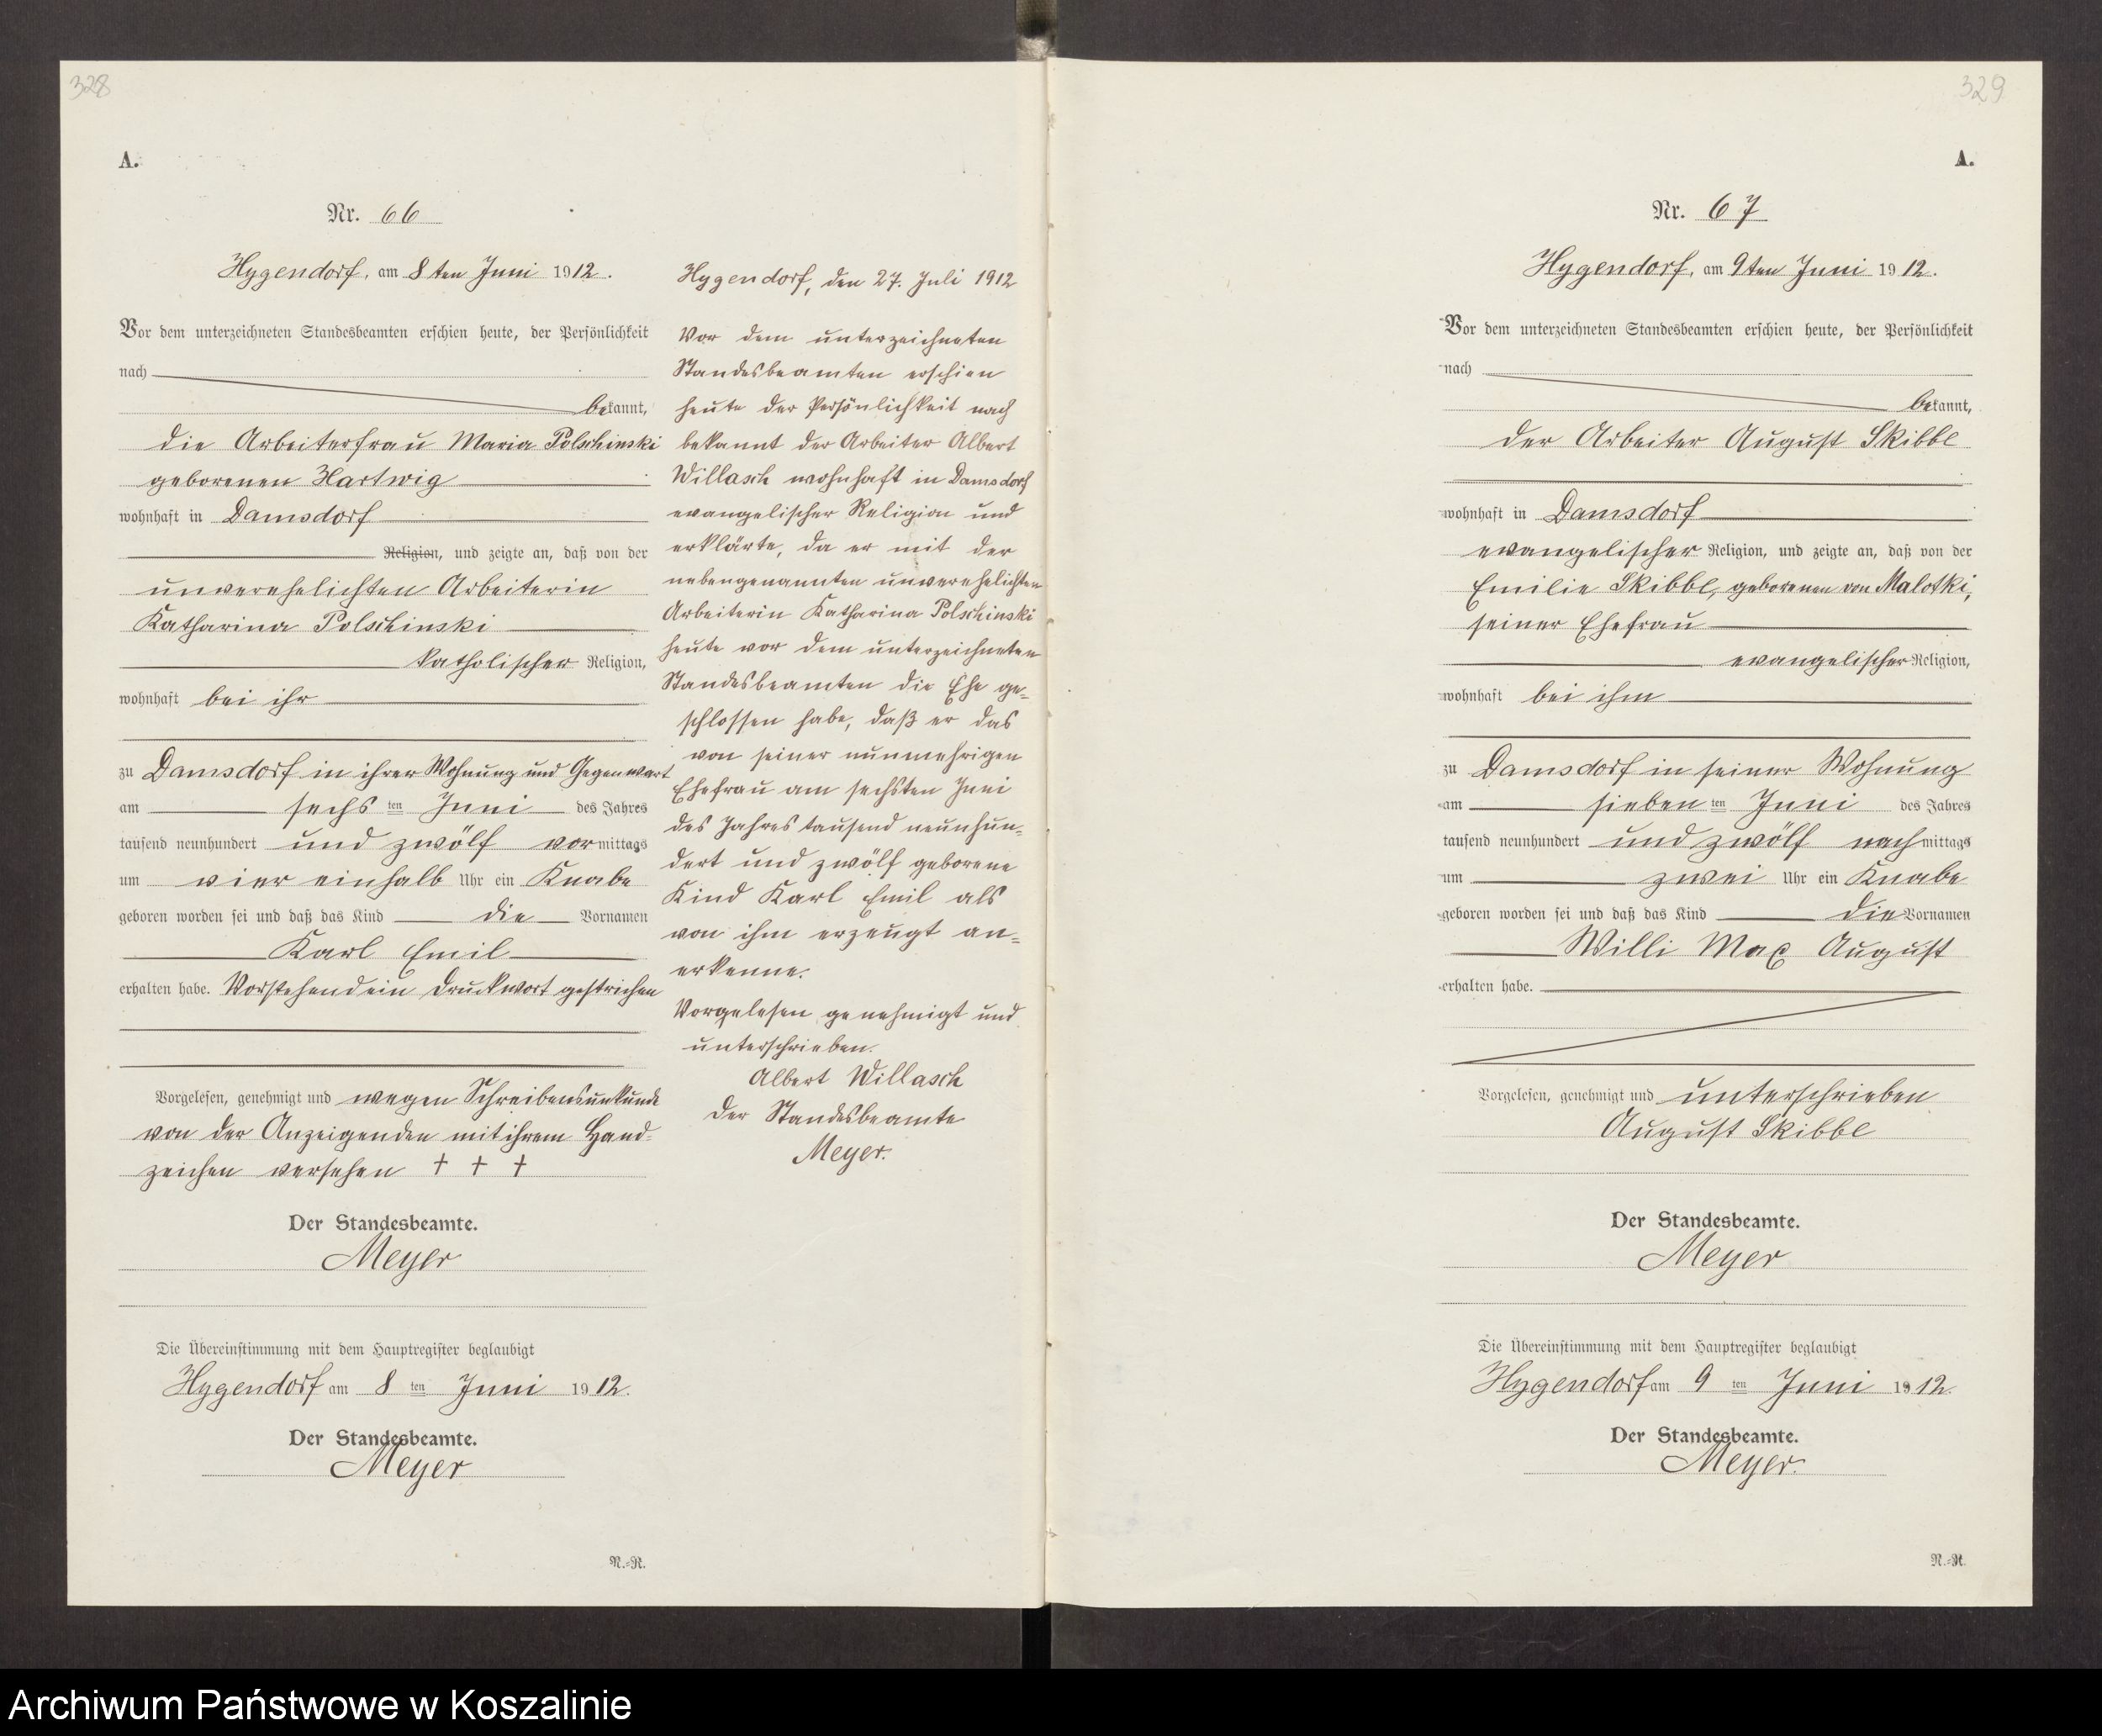 328
A.
Nr. 66
Hygendorf, am 8ten Juni 1912.
Vor dem unterzeichneten Standesbeamten erschien heute, der Persönlichkeit
nach
bekannt,
die Arbeiterfrau Maria Polschinski
geborenen Hartwig
wohnhaft in Damsdorf
Religion, und zeigte an, daß von der
unverehelichten Arbeiterin
Katharina Polschinski
katholischer Religion,
wohnhaft bei ihr
zu Damsdorf in ihrer Wohnung und Gegenwart
am sechs ten Juni des Jahres
tausend neunhundert und zwölf vormittags
um vier einhalb Uhr ein Knabe
geboren worden sei und daß das Kind die Vornamen
Karl Emil
erhalten habe. Vorstehend ein Druckwort gestrichen
Vorgelesen, genehmigt und wegen Schreibensunkunde
von der Anzeigenden mit ihrem Hand-
zeichen versehen + + +
Der Standesbeamte.
Meyer
Die Übereinstimmung mit dem Hauptregister beglaubigt
Hygendorf am 8 ten Juni 1912.
Der Standesbeamte.
Meyer
N.-R.
Hygendorf, den 27. Juli 1912
Vor dem unterzeichneten
Standesbeamten erschien
heute der Persönlichkeit nach
bekannt der Arbeiter Albert
Willasch wohnhaft in Damsdorf
evangelischer Religion und
erklärte, da er mit der
nebengenannten unverehelichten
Arbeiterin Katharina Polschinski
heute vor dem unterzeichneten
Standesbeamten die Ehe ge-
schlossen habe, daß er das
von seiner nunmehrigen
Ehefrau am sechsten Juni
des Jahres tausend neunhun-
dert und zwölf geborene
Kind Karl Emil als
von ihm erzeugt an-
erkenne.
Vorgelesen genehmigt und
unterschrieben.
Albert Willasch
Der Standesbeamte
Meyer.
329
A.
Nr. 67
Hygendorf, am 9ten Juni 1912.
Vor dem unterzeichneten Standesbeamten erschien heute, der Persönlichkeit
nach
bekannt,
der Arbeiter August Skibbe
wohnhaft in Damsdorf
evangelischer Religion, und zeigte an, daß von der
Emilie Skibbe, geborenen von Malotki,
seiner Ehefrau
evangelischer Religion,
wohnhaft bei ihm
zu Damsdorf in seiner Wohnung
am sieben ten Juni des Jahres
tausend neunhundert und zwölf nachmittags
um zwei Uhr ein Knabe
geboren worden sei und daß das Kind die Vornamen
Willi Max August
erhalten habe.
Vorgelesen, genehmigt und unterschrieben
August Skibbe
Der Standesbeamte.
Meyer
Die Übereinstimmung mit dem Hauptregister beglaubigt
Hygendorf am 9 ten Juni 1912.
Der Standesbeamte.
Meyer.
N.-R.
Archiwum Państwowe w Koszalinie